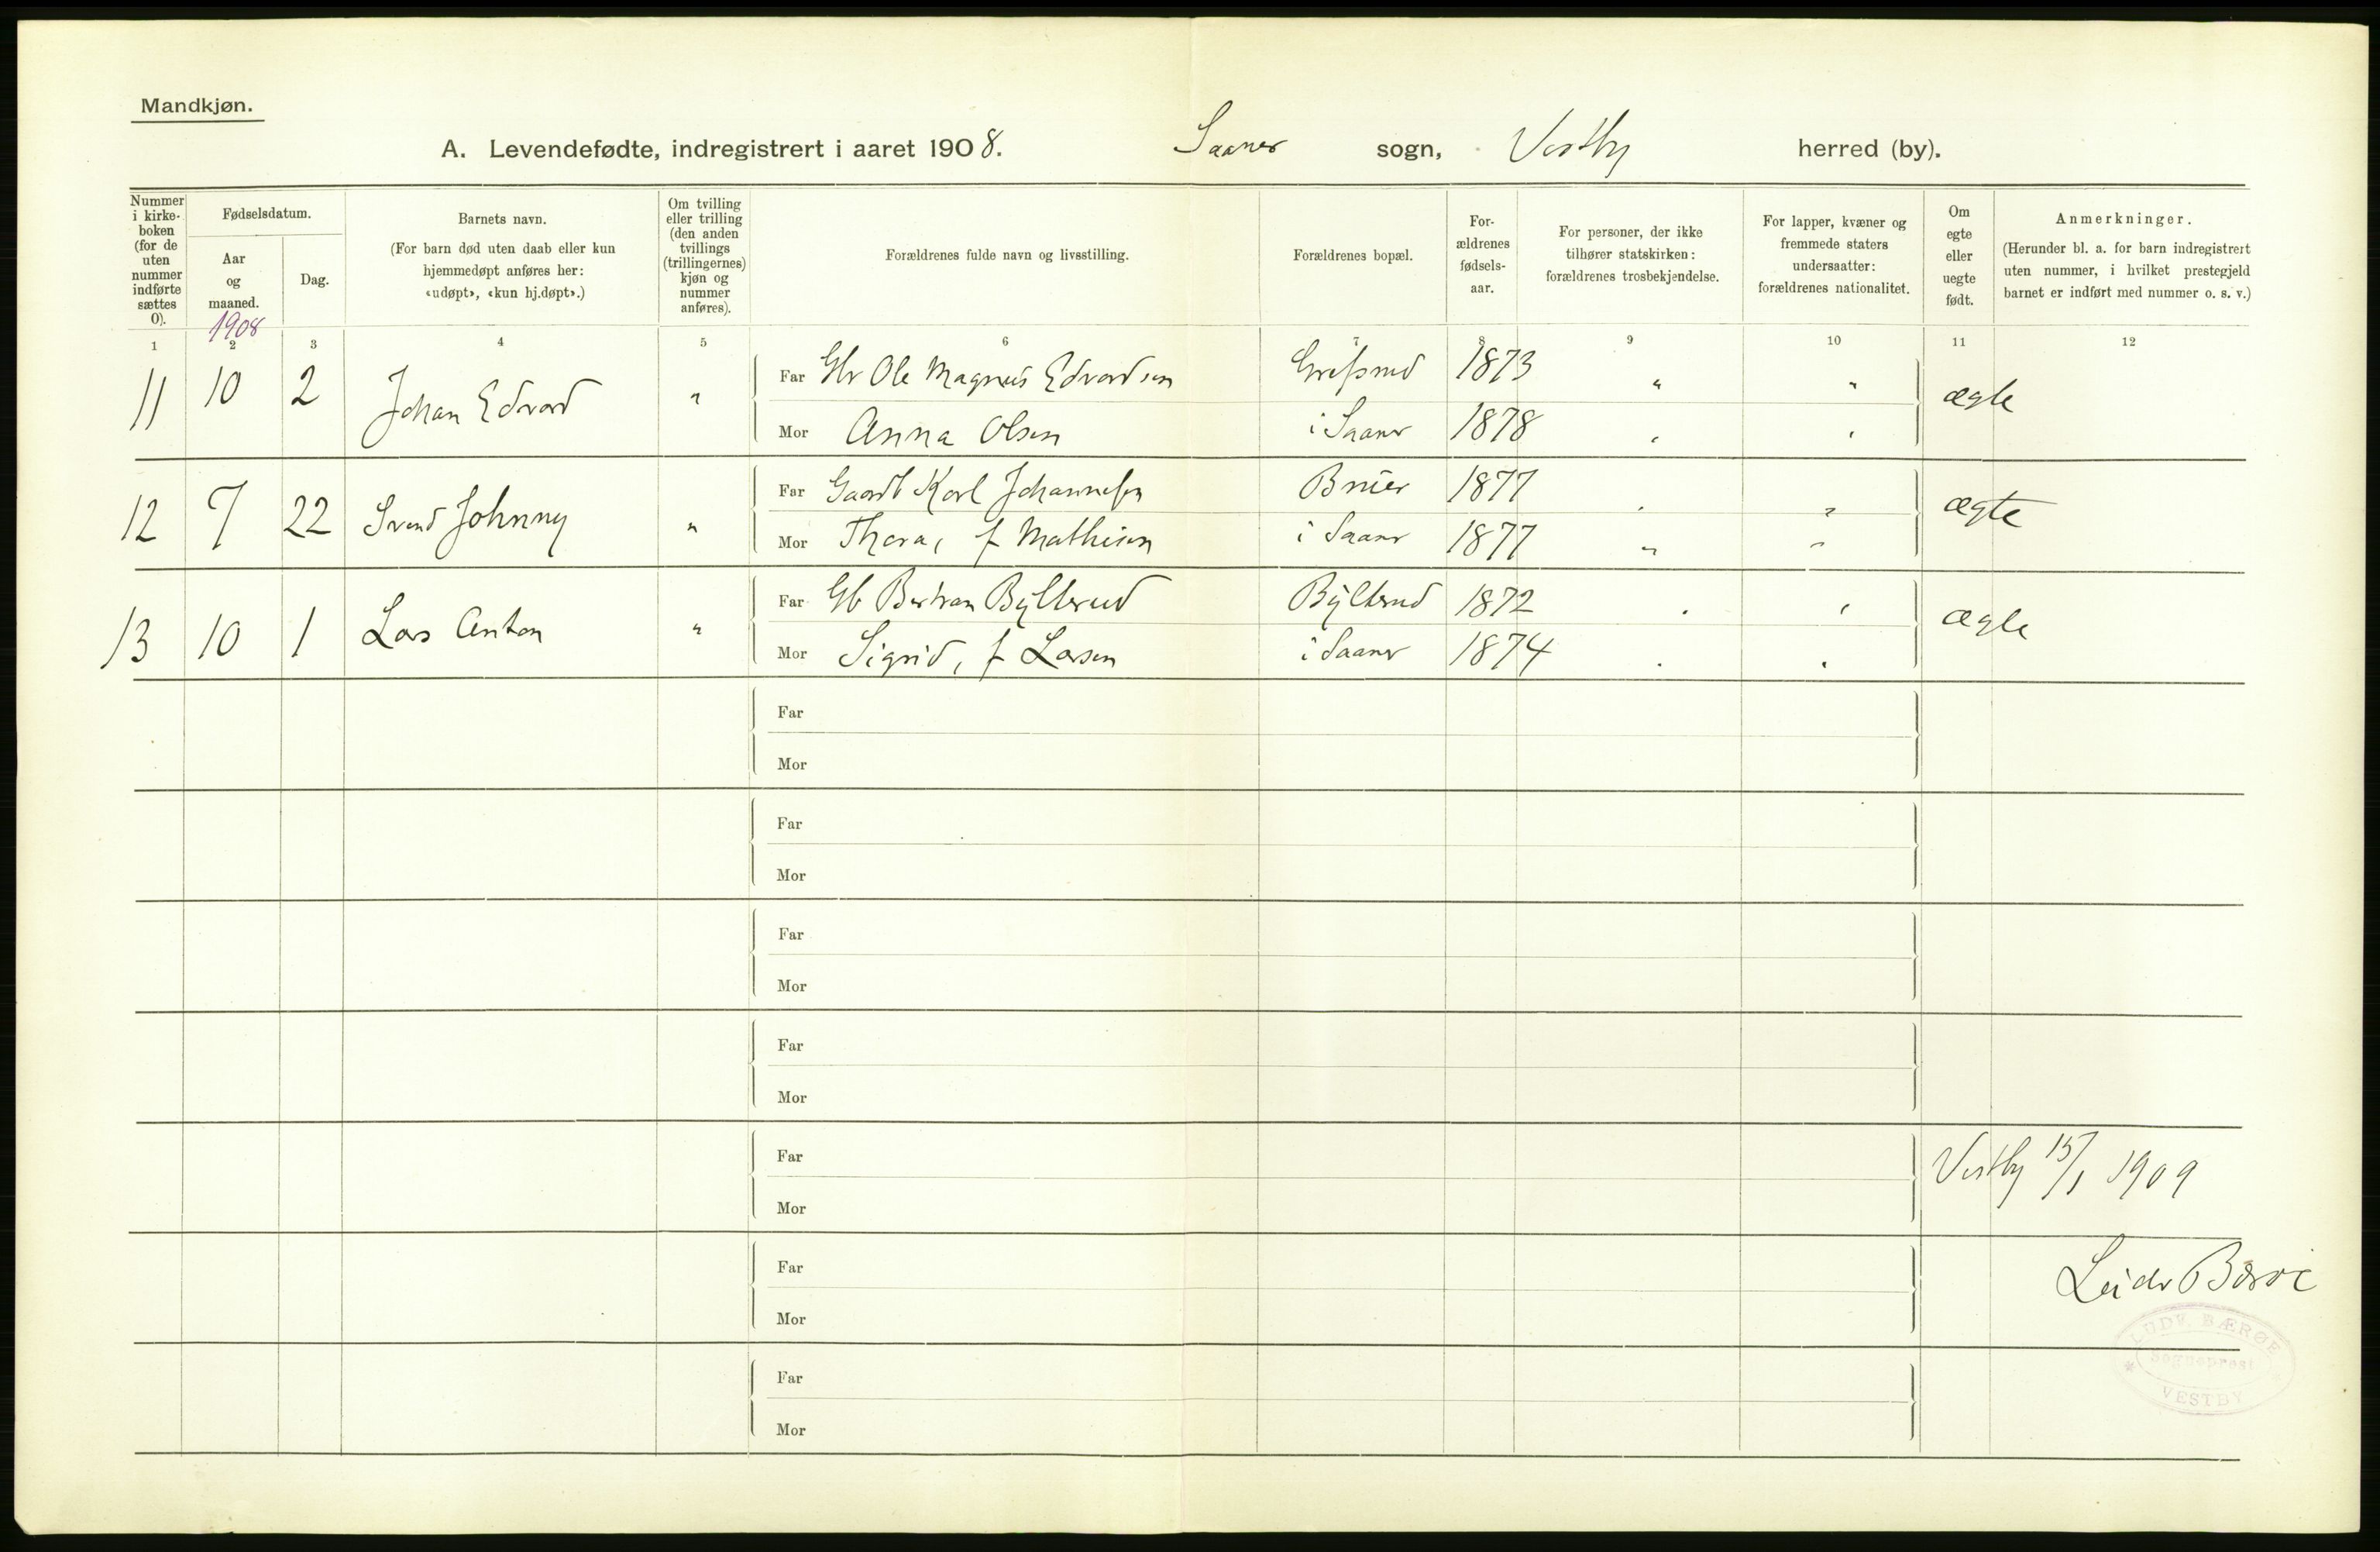 Mandkjøn.
A. Levendefødte, indregistrert i aaret 1908. Saaner sogn, Vestby herred (by).
Nummer i kirke-boken (for de uten nummer indførte sættes 0).
Fødselsdatum.
Aar og maaned.
Dag.
Barnets navn.
(For barn død uten daab eller kun hjemmedøpt anføres her: «udøpt», «kun hj.døpt».)
Om tvilling eller trilling (den anden tvillings (trillingernes) kjøn og nummer anføres).
Forældrenes fulde navn og livsstilling.
Forældrenes bopæl.
For-ældrenes fødsels-aar.
For personer, der ikke tilhører statskirken: forældrenes trosbekjendelse.
For lapper, kvæner og fremmede staters undersaatter: forældrenes nationalitet.
Om egte eller uegte født.
Anmerkninger.
(Herunder bl. a. for barn indregistrert uten nummer, i hvilket prestegjeld barnet er indført med nummer o. s. v.)
1908
1 2 3 4 5 6 7 8 9 10 11 12
11 10 2 Johan Edvard " Far Ole Magnus Edvardsen 1873 " " ægte
Mor Anna Olsen i Saaner 1878 " "
12 7 22 Svend Johnny " Far Gaardb Karl Johannesen Bruer 1877 " " ægte
Mor Thora, f Mathisen i Saaner 1877 " "
13 10 1 Lars Anton " Far Gb Bertran Bylterud Bylterud 1872 " " ægte
Mor Sigrid, f Larsen i Saaner 1874 " "
Far
Mor
Far
Mor
Far
Mor
Far
Mor
Far
Mor
Vestby 15/1 1909
Far
Mor
Bærøe
Far
Mor
LUDV. BÆRØE
Sogneprest
VESTBY